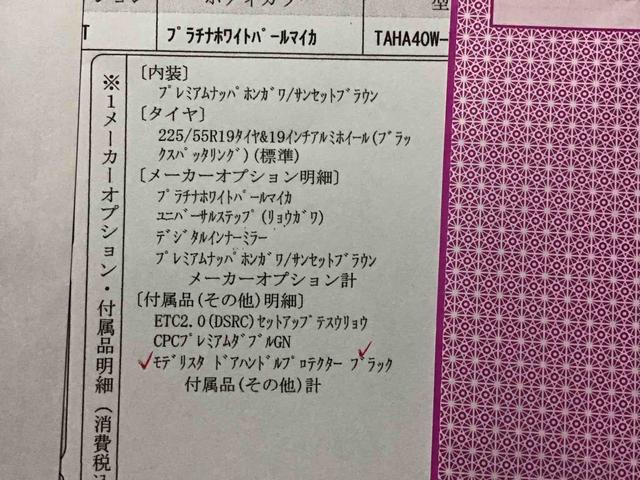 T
ﾌﾟﾗﾁﾅﾎﾜｲﾄﾊﾟｰﾙﾏｲｶ
TAHA40W-
※1メーカーオプション・付属品明細(消費税込
[内装]
ﾌﾟﾚﾐｱﾑﾅｯﾊﾟﾎﾝｶﾞﾜ/ｻﾝｾｯﾄﾌﾞﾗｳﾝ
[タイヤ]
225/55R19ﾀｲﾔ&19ｲﾝﾁｱﾙﾐﾎｲｰﾙ(ﾌﾞﾗｯ
ｸｽﾊﾟｯﾀﾘﾝｸﾞ)(標準)
[メーカーオプション明細]
ﾌﾟﾗﾁﾅﾎﾜｲﾄﾊﾟｰﾙﾏｲｶ
ﾕﾆﾊﾞｰｻﾙｽﾃｯﾌﾟ(ﾘｮｳｶﾞﾜ)
ﾃﾞｼﾞﾀﾙｲﾝﾅｰﾐﾗｰ
ﾌﾟﾚﾐｱﾑﾅｯﾊﾟﾎﾝｶﾞﾜ/ｻﾝｾｯﾄﾌﾞﾗｳﾝ
メーカーオプション計
[付属品(その他)明細]
ETC2.0(DSRC)ｾｯﾄｱｯﾌﾟﾃｽｳﾘｮｳ
CPCﾌﾟﾚﾐｱﾑﾀﾞﾌﾞﾙGN
ﾓﾃﾞﾘｽﾀ ﾄﾞｱﾊﾝﾄﾞﾙﾌﾟﾛﾃｸﾀｰ ﾌﾞﾗｯｸ
付属品(その他)計